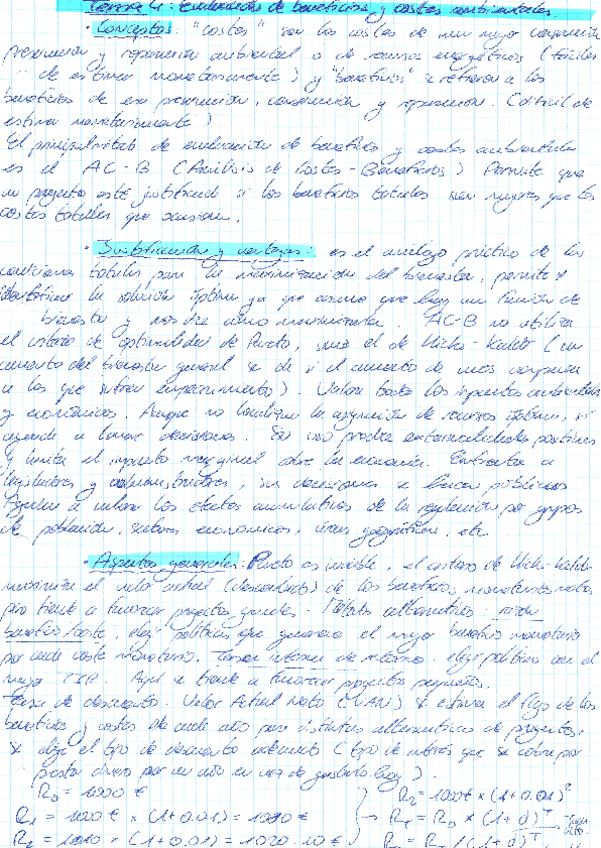 Tema 4: Evaluación de beneficios y costes ambientales.
· Conceptos: "costes" son los costes de una mejor conservación,
preservación y reparación ambiental o de recursos energéticos (fáciles
de estimar monetariamente) y "beneficios" se refieren a los
beneficios de esa preservación, conservación y reparación. (difícil de
estimar monetariamente)
El principal método de evaluación de beneficios y costes ambientales
es el AC-B (Análisis de Costes-Beneficios) Permite que
un proyecto esté justificado si los beneficios totales son mayores que los
costes totales que ocasiona.
· Justificación y ventajas: es el análogo práctico de las
condiciones para la maximización del bienestar, permite
identificar la solución óptima ya que asume que hay una función de
bienestar y nos dice cómo maximizarla. AC-B no utiliza
el criterio de optimalidad de Pareto, sino el de Hicks-Kaldor (un
aumento del bienestar general se da si el aumento de unos compensa
a los que sufren empeoramiento) Valora todos los impactos ambientales
y económicos. Aunque no la asignación de recursos óptima, sí
ayuda a tomar decisiones. produce externalidades positivas
y limita el impacto marginal sobre la economía. a
legisladores y administradores, sus decisiones a públicos
Ayudan a valorar los efectos acumulativos de la regulación por grupos
de población, sectores económicos, áreas geográficas, etc.
· Aspectos generales: Pareto es inviable, el criterio de Hicks-Kaldor
maximiza el valor actual (descontado) de los beneficios monetarios netos
pero tiende a favorecer proyectos grandes. alternativos: ratio
beneficio/coste, elegir políticas que generan el mayor beneficio monetario
por cada coste monetario. Tasa interna de retorno, elegir política con el
mayor TIR. Aquí se tiende a favorecer proyectos pequeños.
Tasa de descuento. Valor Actual Neto (VAN) se estima el flujo de los
beneficios y costes de cada año para distintas alternativas de proyectos,
se elige el tipo de descuento adecuado (tipo de interés que se cobra por
prestar dinero por un año en vez de gastarlo hoy).
R₀ = 1000 € R₂ = 1000€ × (1+0.01)²
R₁ = 1000 € × (1+0.01) = 1010 € → R_T = R₀ × (1+d)^T
R₂ = 1010 × (1+0.01) = 1020.10 €